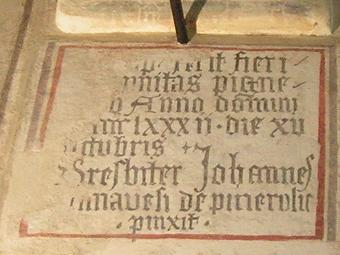 fieri
nitas pigne
Anno domini
lxxxii · die xii
octubris
Presbiter Johannes
anavesi de pinerolii
· pinxit ·